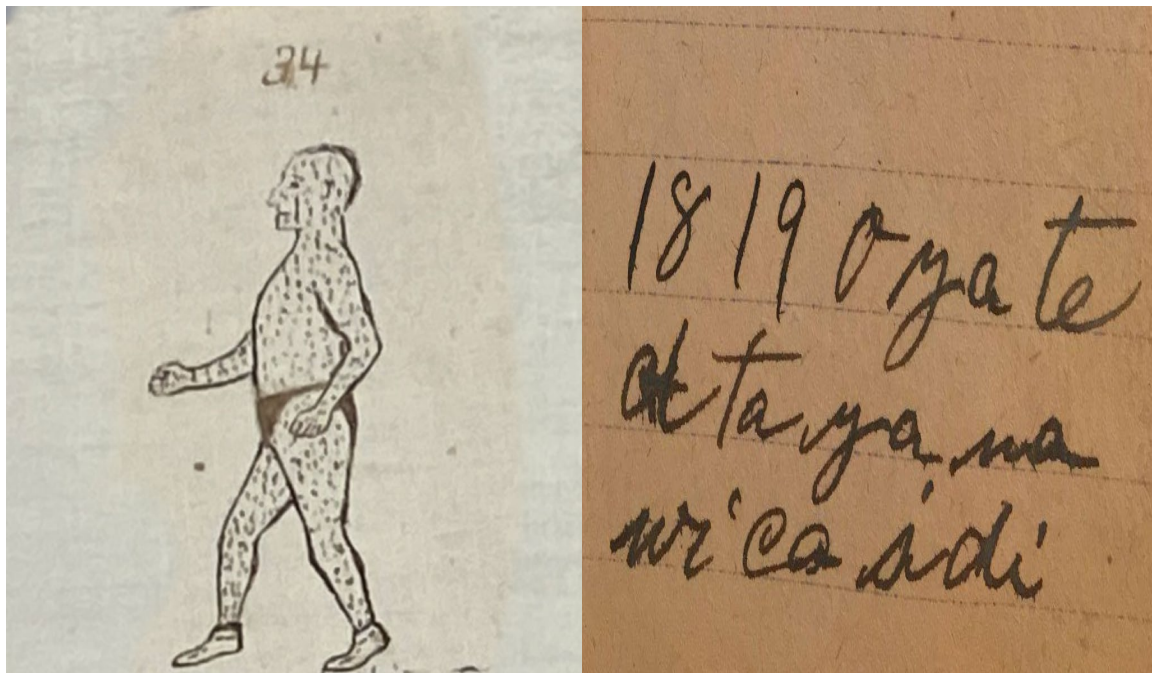 34
1819 oyate
ataya na
wicaṡdi